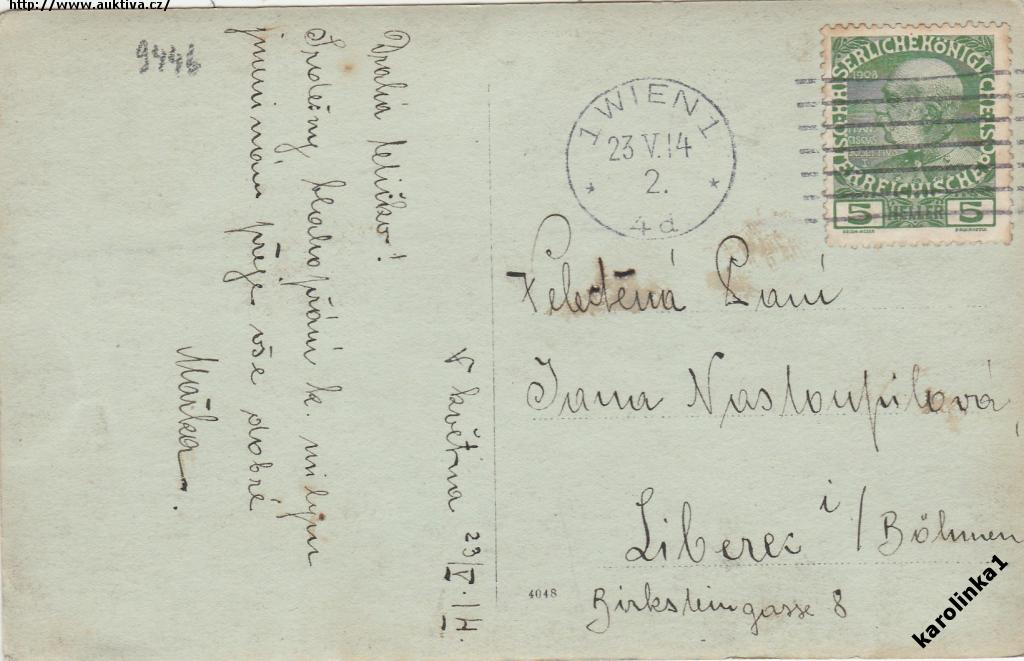 http://www.auktiva.cz/
9446
Drahá tetičko!
Srdečný blahopřání k. milým
jmeninám přeje vše dobré
Mařka.
V květnu 23/V. 14
1 WIEN 1
23 V. 14
2.
* *
4d
1908
5 HELLER 5
Velectěná Paní
Jana Nastoupilová
Liberec i/Böhmen
Birksteingasse 8
4048
karolinka1